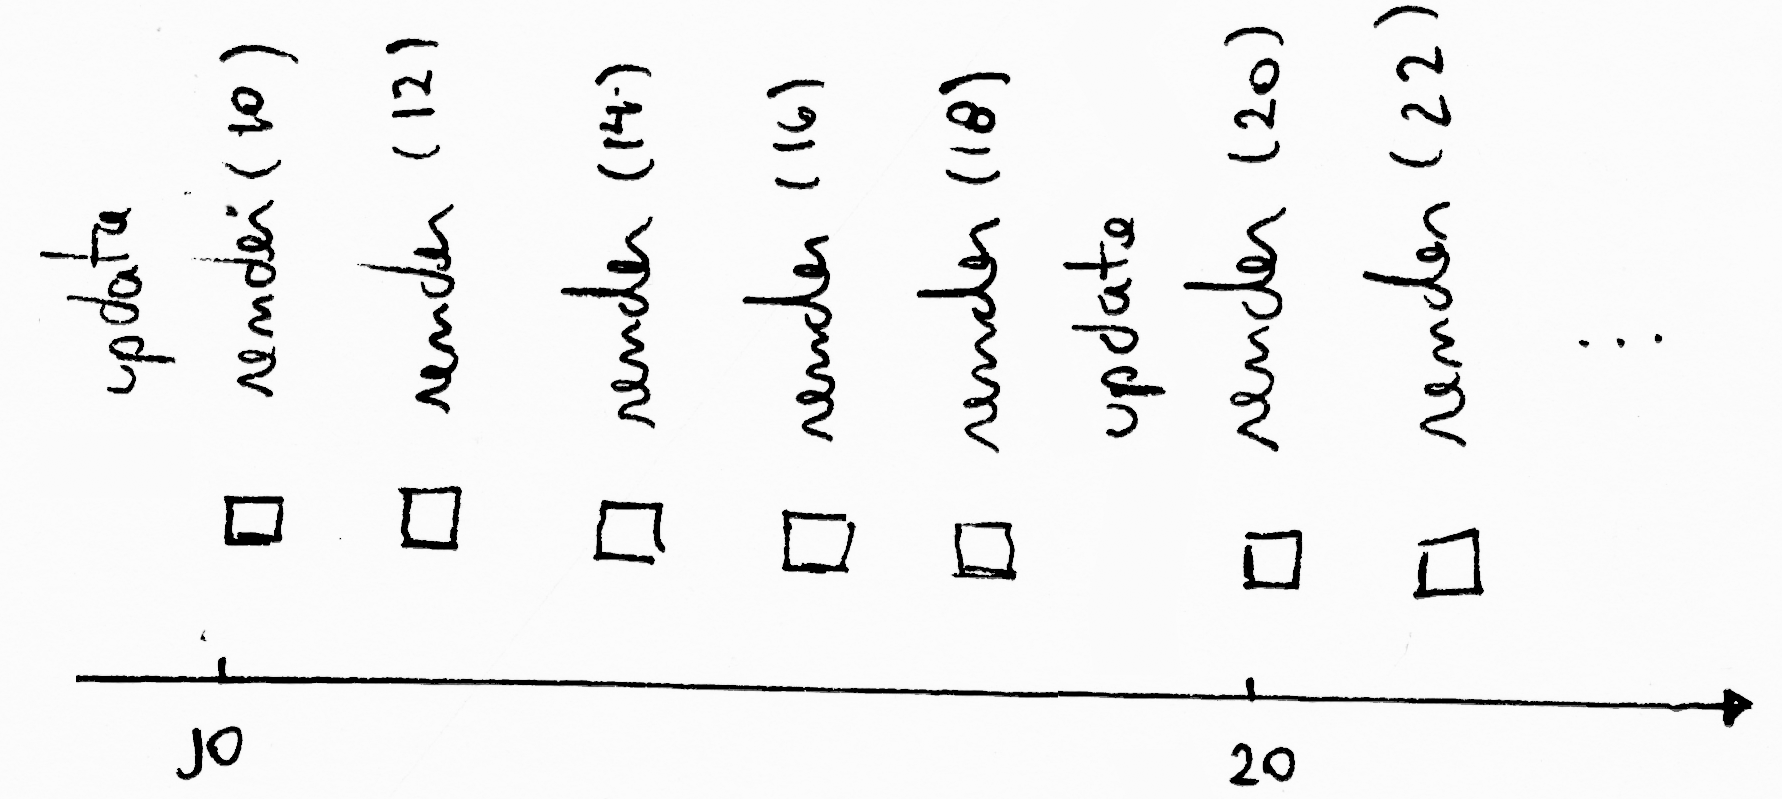 update
render (10)
render (12)
render (14)
render (16)
render (18)
update
render (20)
render (22)
...
10
20